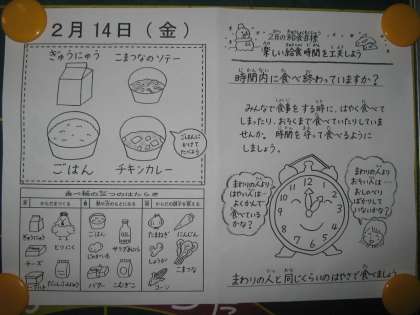 2月14日（金）
ぎゅうにゅう
こまつなのソテー
ごはんに
かけて
たべよう
ごはん
チキンカレー
ぎゅうにゅう
とりにく
チーズ
ごはん
じゃがいも
バター
こむぎこ
たまねぎ
にんじん
しょうが
こまつな
コーン
2月の給食目標
楽しい給食時間を工夫しよう
時間内に食べ終わっていますか？
みんなで食事をする時に、はやく食べて
しまったり、おそくまで食べていたりしていま
せんか。時間を守って食べるように
しましょう。
まわりの人より
はやい人は…
よくかんで
食べている
かな？
まわりの人より
おそい人は…
おしゃべり
ばかりして
いないかな？
まわりの人と同じくらいのはやさで食べましょう